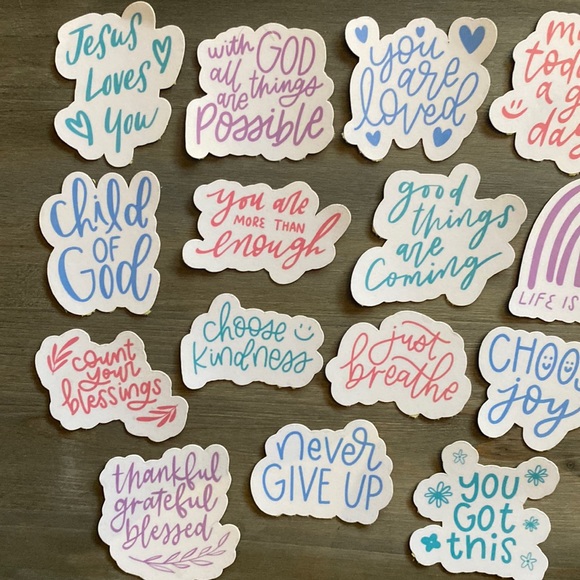 Jesus
Loves
You
with GOD
all things
are
possible
you
are
loved
m
toda
a g
day
child
OF
God
you are
MORE THAN
enough
good
things
are
coming
LIFE IS
count
your
blessings
choose
kindness
just
breathe
CHOO
joy
thankful
grateful
blessed
never
GIVE UP
YOU
GOT
this